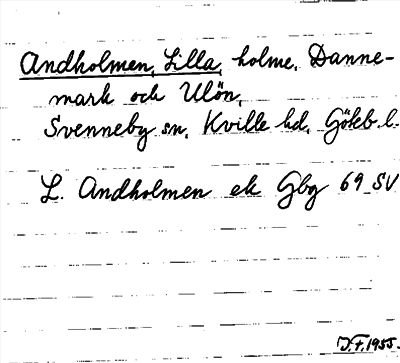 Andholmen, Lilla, holme, Danne-
mark och Ulön,
Svenneby sn, Kville hd, Göteb. l.
L. Andholmen ek Gbg 69 SV
1955.